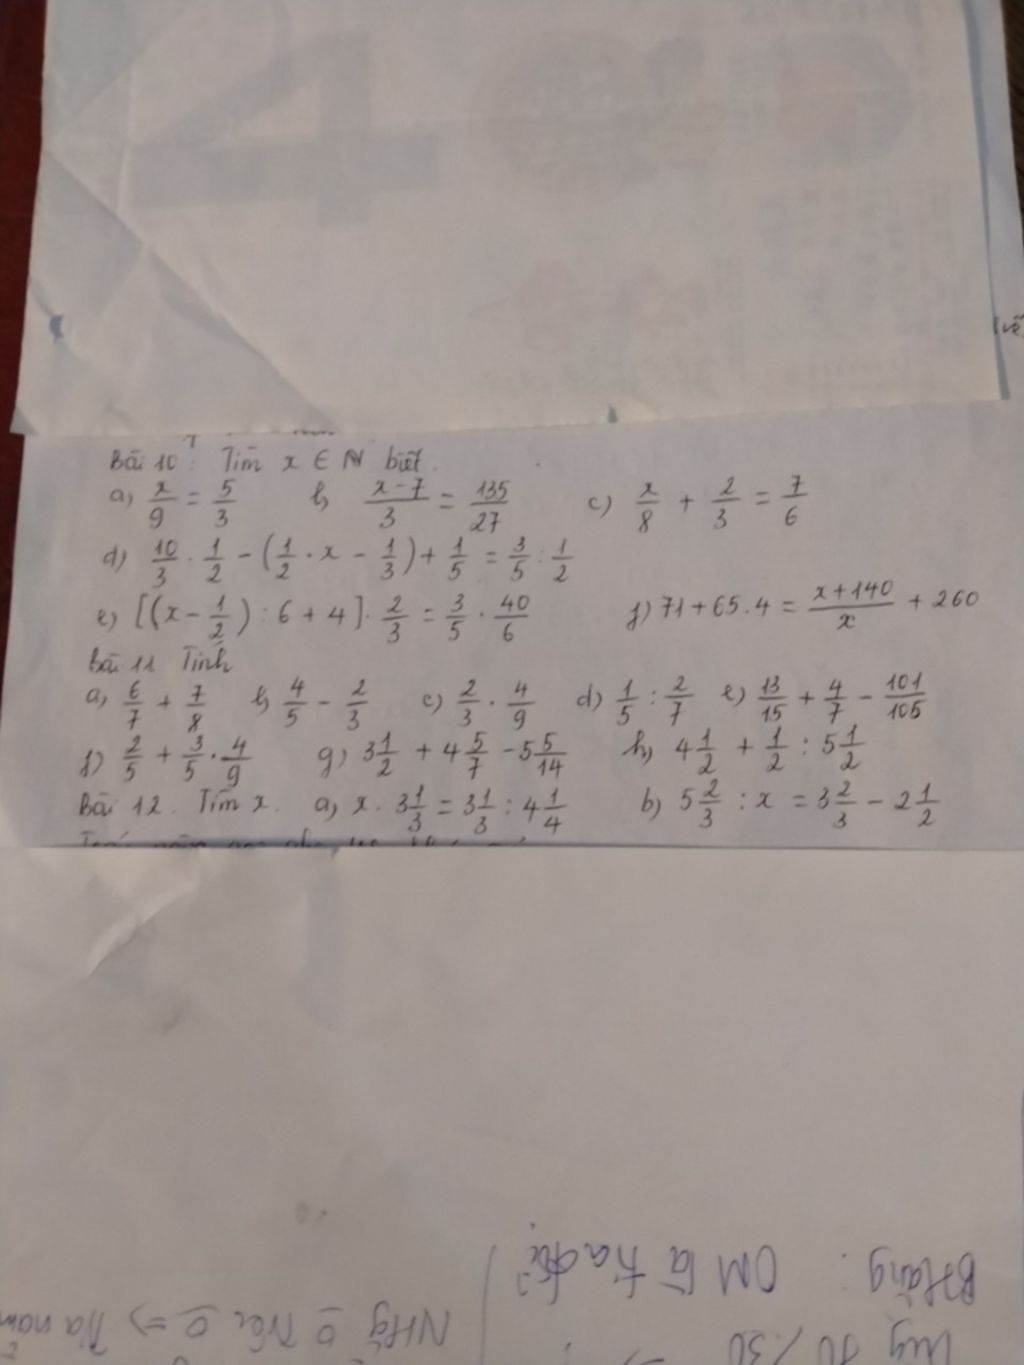 Bài 10: Tìm x ∈ N biết.
a) x/9 = 5/3 b) (x-7)/3 = 135/27 c) x/8 + 2/3 = 7/6
d) 10/3 . 1/2 - (1/2 . x - 1/3) + 1/5 = 3/5 : 1/2
e) [(x - 1/2) : 6 + 4] . 2/3 = 3/5 . 40/6 f) 71 + 65.4 = (x+140)/x + 260
Bài 11 Tính
a) 6/7 + 7/8 b) 4/5 - 2/3 c) 2/3 . 4/9 d) 1/5 : 2/7 e) 13/15 + 4/7 - 101/105
f) 2/5 + 3/5 . 4/9 g) 3 1/2 + 4 5/7 - 5 5/14 h) 4 1/2 + 1/2 : 5 1/2
Bài 12. Tìm x. a) x . 3 1/3 = 3 1/3 : 4 1/4 b) 5 2/3 : x = 3 2/3 - 2 1/2
OM là tia